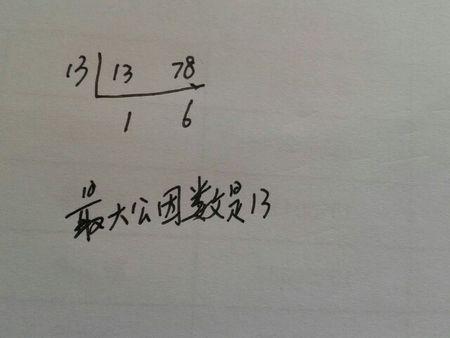 13 13 78
1 6
最大公因数是13